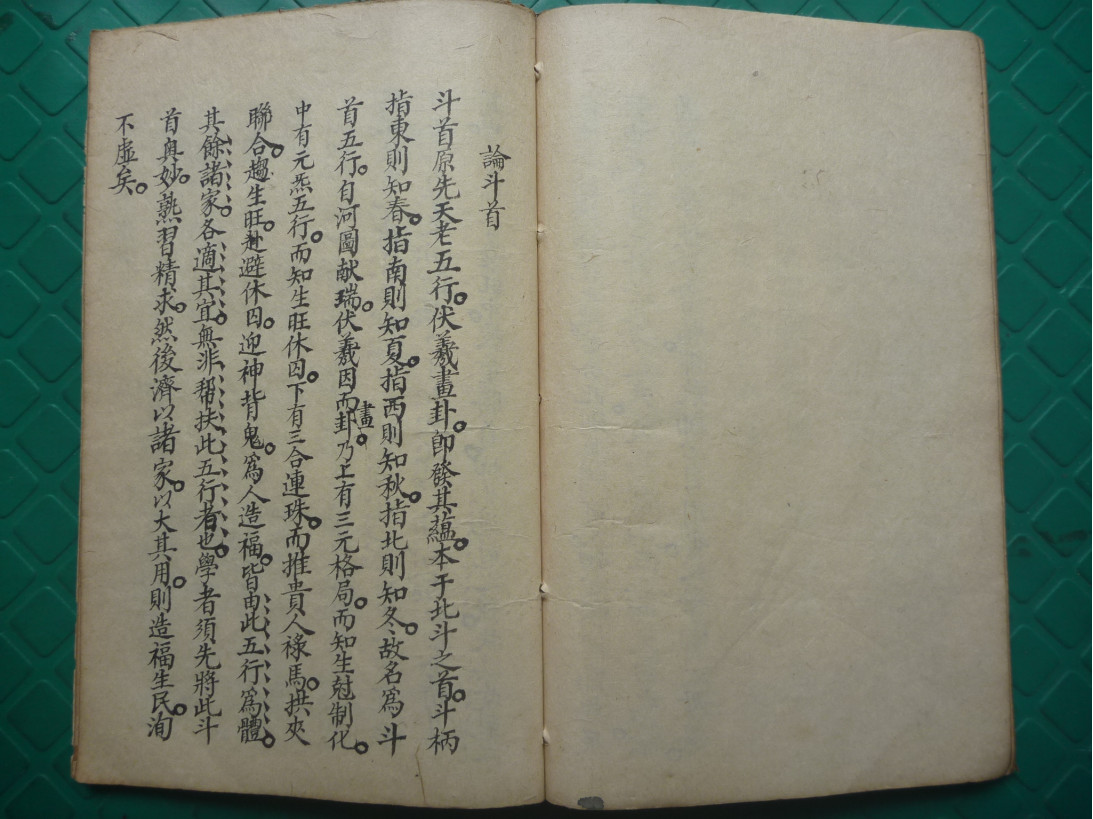 論斗首
斗首原先天老五行。伏羲畫卦。即發其蘊。本于北斗之首。斗柄
指東則知春。指南則知夏。指西則知秋。指北則知冬。故名爲斗
首五行。自河圖献瑞。伏羲因而畫卦。乃上有三元格局。而知生尅制化。
中有元炁五行。而知生旺休囚。下有三合連珠。而推貴人祿馬。拱夾
聯合。趨生旺。赴避休囚。迎神背鬼。爲人造福。皆由此五行爲體。
其餘諸家。各適其宜。無非帮扶此五行者也。學者須先將此斗
首奥妙。熟習精求。然後濟以諸家。以大其用。則造福生民。洵
不虛矣。